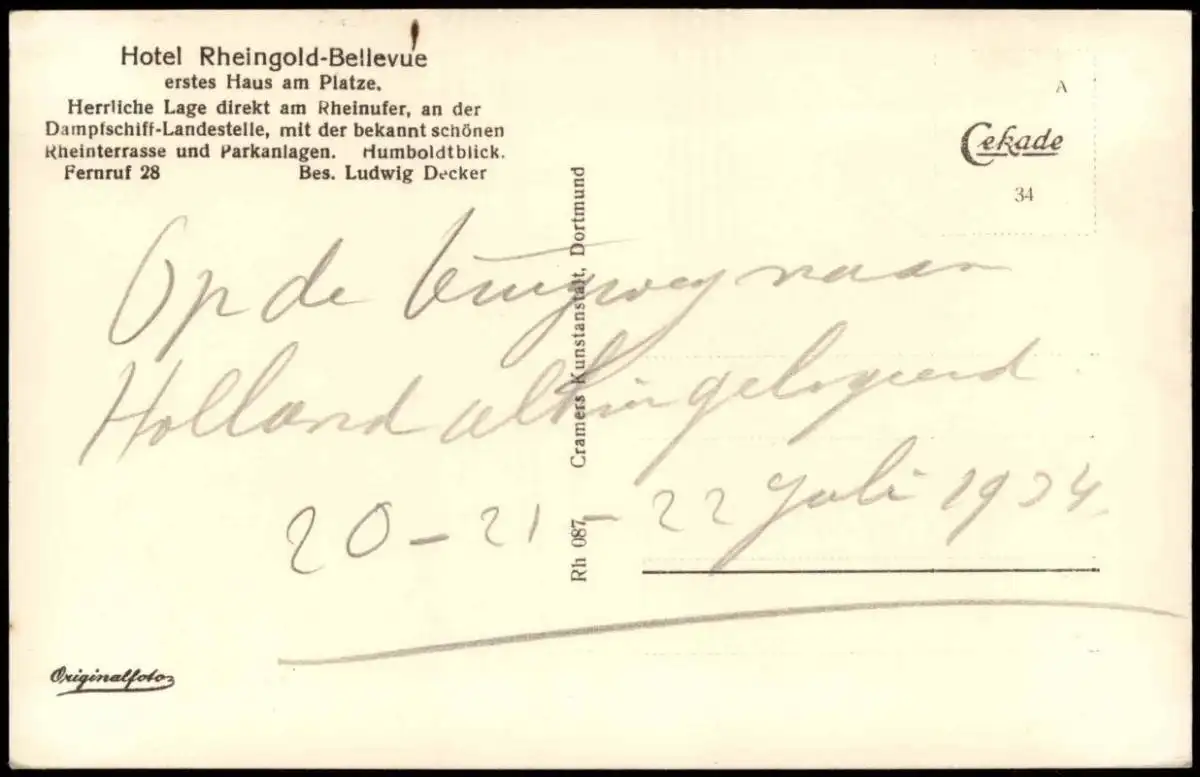 Hotel Rheingold-Bellevue
erstes Haus am Platze.
Herrliche Lage direkt am Rheinufer, an der
Dampfschiff-Landestelle, mit der bekannt schönen
Rheinterrasse und Parkanlagen. Humboldtblick.
Fernruf 28 Bes. Ludwig Decker
A
Cekade
34
Op de terugweg naar
Holland gelogeerd
20-21-22 Juli 1934.
Rh 087 Cramers Kunstanstalt, Dortmund
Originalfoto